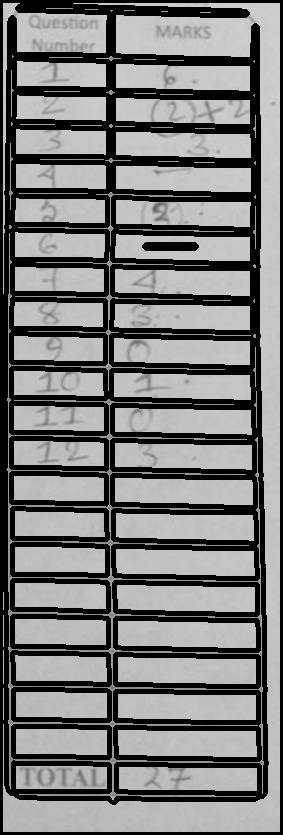 Question Number MARKS
1 6.
2 (2)+2
3 3.
4 —
5 (2).
6 —
7 4.
8 3.
9 0
10 1.
11 0
12 3
TOTAL 27